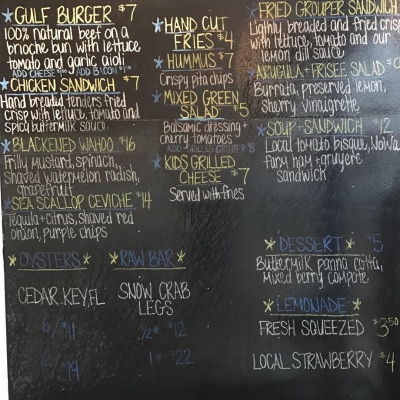 GULF BURGER $7
100% natural beef on a
brioche bun with lettuce
tomato and garlic aioli
ADD CHEESE ADD BACON
CHICKEN SANDWICH $7
Hand breadid tenders fried
crisp with lettuce, tomato and
spicy buttermilk sauce
BLACKENED WAHOO $16
Frilly mustard, spinach,
Shaved watermelon radish,
grapefruit
SEA SCALLOP CEVICHE $14
Tequila + citrus, shaved red
onion, purple chips
OYSTERS
CEDAR KEY, FL
6/ $11
12/ $19
HAND CUT
FRIES $4
HUMMUS $7
Crispy pita chips
MIXED GREEN
SALAD $5
Balsamic dressing +
cherry tomatoes
KIDS GRILLED
CHEESE $7
Served with fries
RAW BAR
SNOW CRAB
LEGS
1/2# $12
1# $22
FRIED GROUPER SANDWICH
Lightly breaded and fried crisp
with lettuce, tomato and our
lemon dill sauce
ARUGULA + FRISEE SALAD
Burrata, preserved lemon,
sherry vinaigrette
SOUP + SANDWICH $12
Local tomato bisque, NoNa
farm ham + gruyere
sandwich
DESSERT $5
Buttermilk panna cotta,
Mixed berry compote
LEMONADE
FRESH SQUEEZED $3.50
LOCAL STRAWBERRY $4